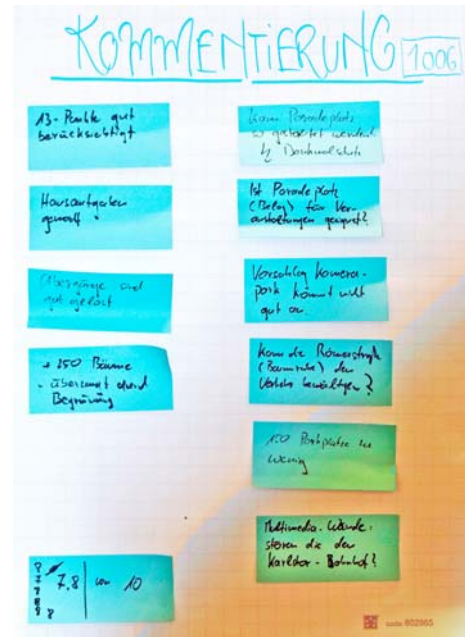 KOMMENTIERUNG 1006
13-Punkte gut
berücksichtigt
Hausaufgaben
gemacht
Übergänge sind
gut gelöst
+ 250 Bäume
- überzeugt durch
Begrünung
7,8 von 10
Kann Paradeplatz
so gestaltet werden?
Denkmalschutz
Ist Paradeplatz
(Belag) für Ver-
anstaltungen geeignet?
Vorschlag Kamera-
park kommt nicht
gut an.
Kann die Römerstraße
(Baumreihe) den
Verkehr bewältigen?
150 Parkplätze zu
wenig
Multimedia-Wände:
stören die den
Karlstor-Bahnhof?
code 802965